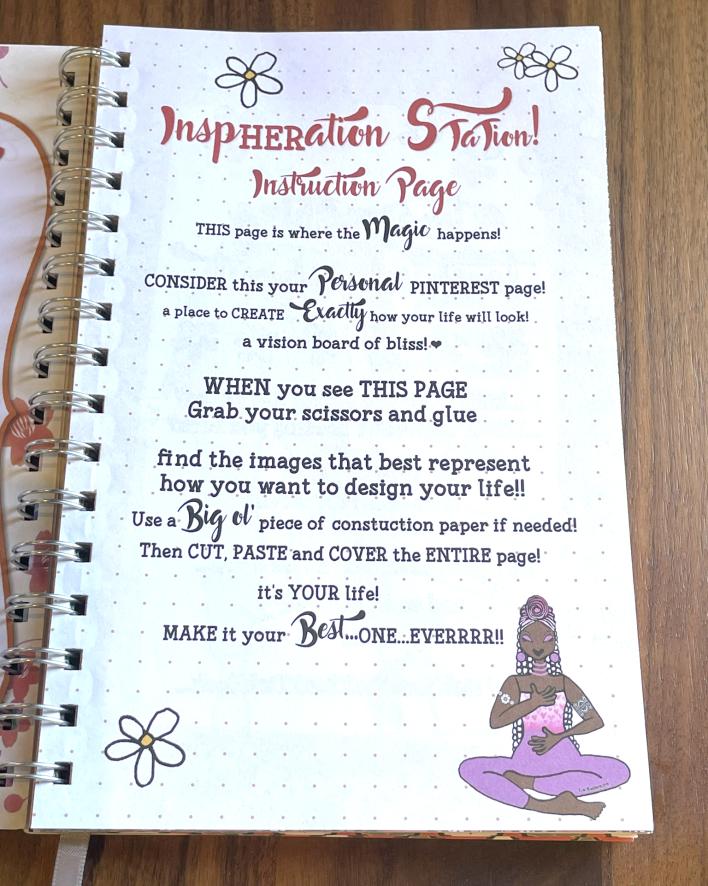 InspHERation STaTion!
Instruction Page
THIS page is where the Magic happens!
CONSIDER this your Personal PINTEREST page!
a place to CREATE Exactly how your life will look!
a vision board of bliss!❤
WHEN you see THIS PAGE
Grab your scissors and glue
find the images that best represent
how you want to design your life!!
Use a Big ol' piece of constuction paper if needed!
Then CUT, PASTE and COVER the ENTIRE page!
it's YOUR life!
MAKE it your Best...ONE...EVERRRR!!